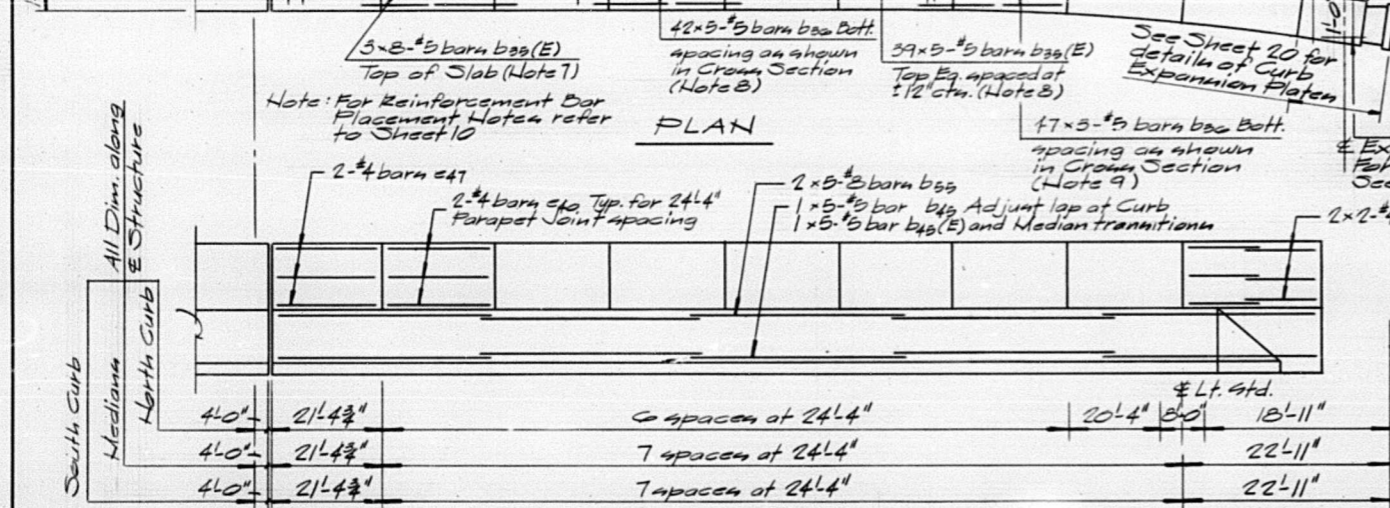 3x8-#5 bars b39(E)
Top of Slab (Note 7)
42x5-#5 bars b36 Bott.
spacing as shown
in Cross Section
(Note 8)
39x5-#5 bars b39(E)
Top Eq. spaced at
±12" cts. (Note 8)
See Sheet 20 for
details of Curb
Expansion Plates
1'-0
Note: For Reinforcement Bar
Placement Notes refer
to Sheet 10
PLAN
47x3-#5 bars b36 Bott.
spacing as shown
in Cross Section
(Note 9)
℄ Ex
For
See
All Dim. along
℄ Structure
2-#4 bars e47
2-#4 bars e40 Typ. for 24'-4"
Parapet Joint spacing
2x5-#8 bars b55
1x5-#5 bar b45 Adjust lap at Curb
1x5-#5 bar b45(E) and Median transitions
2x2-#
South Curb
Medians
North Curb
℄ Lt. Std.
4'-0" 21'-4¾" 6 spaces at 24'-4" 20'-4" 8'-0" 18'-11"
4'-0" 21'-4¾" 7 spaces at 24'-4" 22'-11"
4'-0" 21'-4¾" 7 spaces at 24'-4" 22'-11"